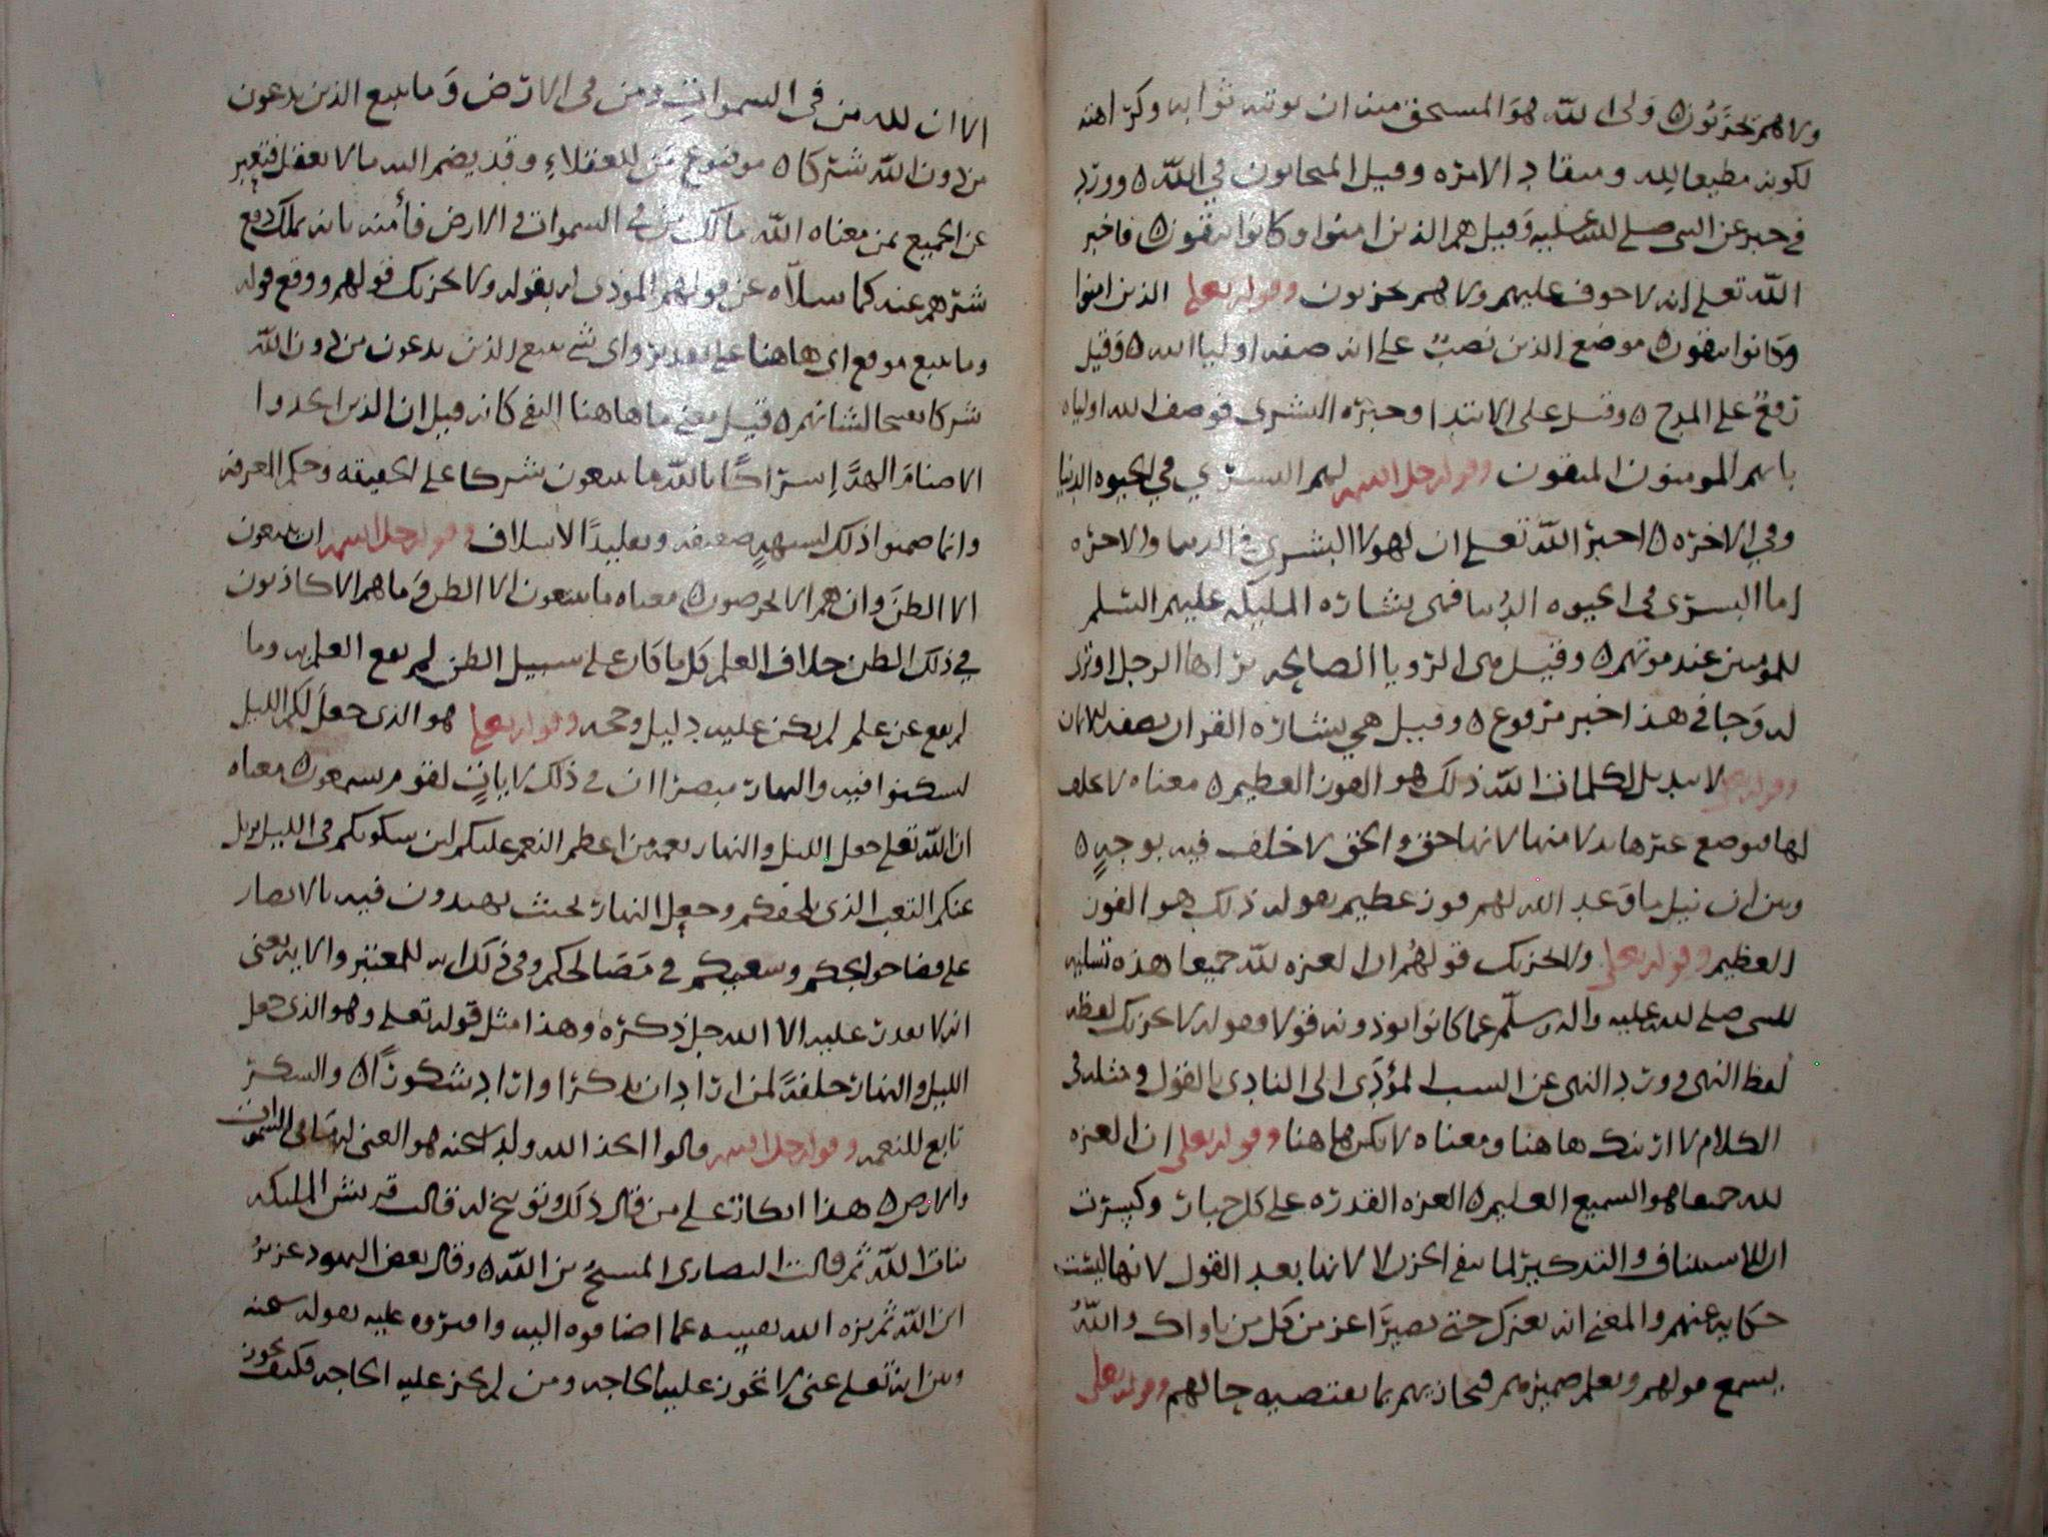 ولا هم يحزنون ٥ وَلى الله هوَ المستحق منه ان يوتيه ثوابه وكرامته
لكونه مطيعا لله ومنقاد الامره وقيل المتحابون في الله ٥ وورد
في خبر عن النبى صلى الله عليه وَقيل هم الذين امنوا وكانوا يتقون ٥ فاخبر
الله تعلى انه لا خوف عليهم ولا هم يحزنون وقوله تعلى الذين امنوا
وَكانوا يتقون ٥ موضع الذين نصبٌ على انه صفه اوليا الله ٥ وَقيل
رَفعٌ على المدح ٥ وقيل على الابتدا وخبره البشرى فوصف الله اولياه
بانهم المومنون المتقون وقوله جل اسمه لهم البشرى في الحيوه الدنيا
وفي الاخره ٥ اخبر الله تعلى ان لهولا البشرى في الدنيا والاخره
اما البشرى في الحيوه الدُنيا فهى بشاره المليكه عليهم السلم
للمومنين عند موتهم ٥ وقيل هى الرويا الصالحه يراها الرجل او ترى
له وَجا في هذا خبر مرفوع ٥ وقيل هي بشاره القران بصفه الايمان
وقوله تعلى لا تبديل لكلمات الله ذلك هو الفوز العظيم ٥ معناه لا خلف
لها فتوضع غيرها بدلا منها لانها حق والحق لا خلف فيه بوجهٍ ٥
وبين ان نيل ما وَعد الله لهم فوز عظيم بقوله ذلك هو الفوز
العظيم وقوله تعلى ولا يحزنك قولهُم ان العزه لله جميعا هذه تسليه
للنبى صلى الله عليه واله وسلّم عما كانوا يوذونه قولا وقوله لا يحزنك لفظه
لفظ النهى وورد النهى عن السبب المؤدى الى التاذى بالقول ومثله في
الكلام لا اريَنك هاهنا ومعناه لا تكن هاهنا وقوله تعلى ان العزه
لله جميعا هو السميع العليم ٥ العزه القدره على كل جبار وكسرت
ان للاستيناف والتذكير لما ينفى الحزن لا لانها بعد القول لانها ليست
حكايه عنهم والمعنى انه يعزك حتى تصيرَ اعز من كل من ناواك واللهُ
يسمع قولهم ويعلم ضميرهم فيجازيهم بما يقتضيه حالهم وقوله تعلى
الا ان لله من في السموات ومن في الارض وَما يتبع الذين يدعون
من دون الله شركا ٥ موضوع مَن للعقلاءِ وقد يضم اليه ما لا يعقل فتعبر
عن الجميع بمن معناه الله مالك من في السموات والارض فأمنه بانه يملك دفع
شرهم عنه كما سلاّه عن قولهم الموذى له بقوله ولا يحزنك قولهم ووقع قوله
وما يتبع موقع اى هاهنا على تقدير واى شى يتبع الذين يدعون من دون الله
شركا تقبيحا لشانهم ٥ قيل معنى ما هاهنا النفى كانه قيل ان الذين اتخذوا
الاصنامَ الهةً إشراكًا بالله ما يتبعون شركا على الحقيقه وحكم المعرفه
وانما ضموا ذلك لشبههٍ ضعيفه وتقليدًا لاسلاف وقوله جل اسمه ان يتبعون
الا الظنَ وان هم الا يخرصون ٥ معناه ما يتبعون الا الظن وَما هم الا كاذبون
في ذلك الظن خلاف العلم كل ما كان على سبيل الظن لم يقع العلم به وما
لم يقع عن علم لم يكن عليه دليل وحجه وقوله تعلى هو الذى جعلَ لكم الليل
لتسكنوا فيه والنهار مبصرا ان في ذلك لاياتٍ لقوم يسمعون ٥ معناه
ان الله تعلى جعل الليل والنهار نعمه من اعظم النعم عليكم لان سكونكم في الليل يزيل
عنكم التعب الذى يلحقكم وجعل النهار بحيث تهتدون فيه بالابصار
على قضا حوايجكم وسعيكم في مَصَالحكم وفي ذلك ايه للمعتبر والايه تعنى
انه لا يقدر عليه الا الله جل ذكره وهذا مثل قوله تعلى وهو الذى جعل
الليل والنهار خلفةً لمن اراد ان يذكر او اراد شكورًا ٥ والشكر
تابع للنعمه وقوله جل اسمه قالوا اتخذ الله ولدا سبحنه هو الغنى له ما في السموات
والارض ٥ هذا انكار على من قال ذلك وتوبيخ له قالت قريش المليكه
بنات الله ثم قالت النصارى المسيحُ بن الله ٥ وقال بعض اليهود عزيرُ
ابن الله ثم نزه الله نفسه عما اضافوه اليه وافتروه عليه بقوله سبحنه
وبين انه تعلى غنى لا تجوز عليه الحاجه ومن لم تجز عليه الحاجه فكيف يجوز